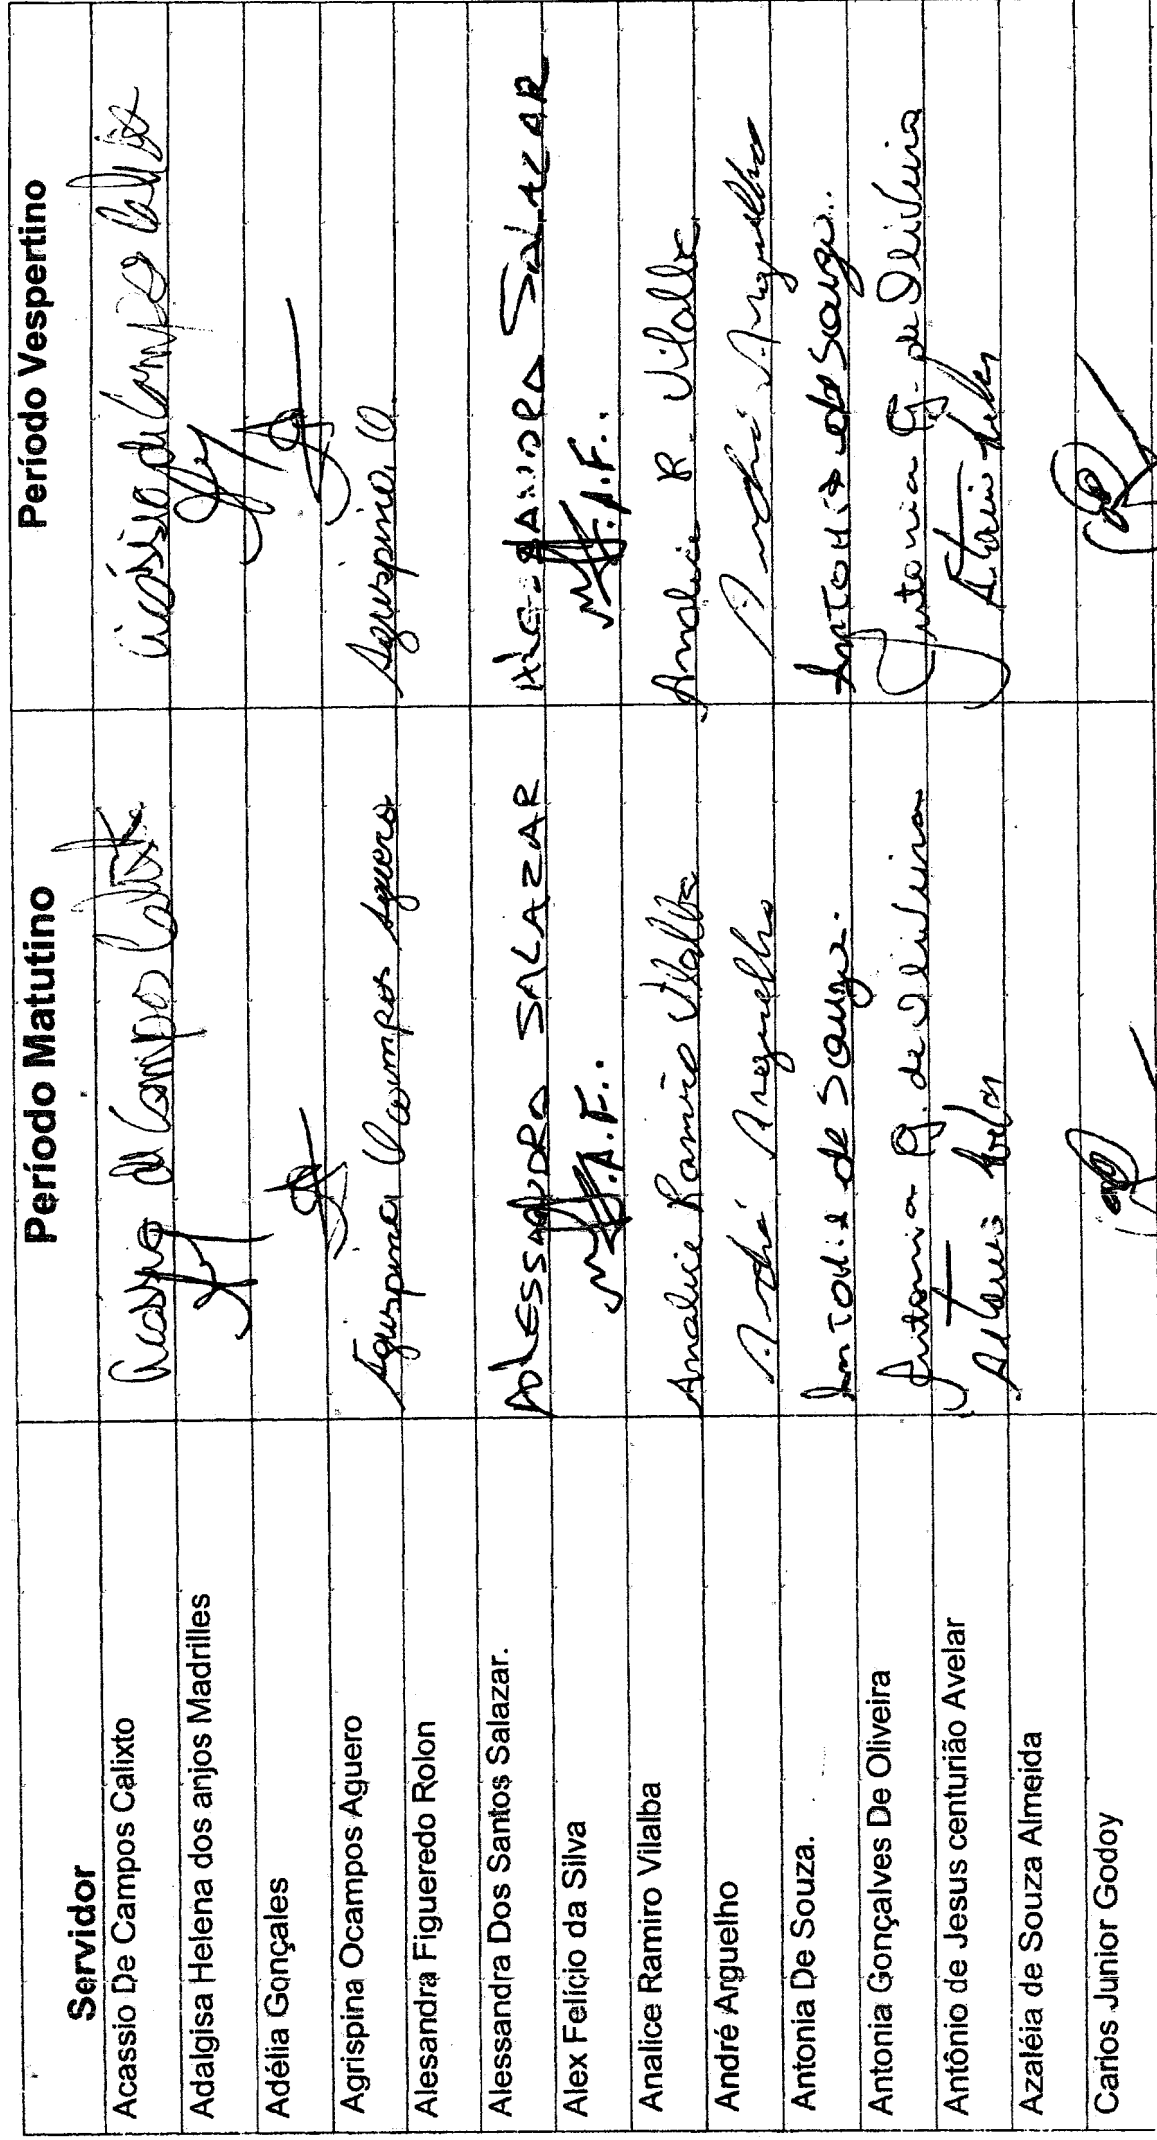 Servidor Período Matutino Período Vespertino
Acassio De Campos Calixto Acassio de Campos Calixto Acassio de Campos Calixto
Adalgisa Helena dos anjos Madrilles
Adélia Gonçales
Agrispina Ocampos Aguero Agrispina Ocampos Aguero Agrispina O
Alesandra Figueredo Rolon
Alessandra Dos Santos Salazar. ALESSANDRA SALAZAR ALESSANDRA SALAZAR
Alex Felício da Silva A.F.. A.F..
Analice Ramiro Vilalba Analice Ramiro Vilalba Analice R. Vilalba
André Arguelho André Arguelho André Arguelho
Antonia De Souza. Antonia de Souza. Antonia de Souza..
Antonia Gonçalves De Oliveira Antonia G. de Oliveira Antonia G. de Oliveira
Antônio de Jesus centurião Avelar Antonio Avelar Antonio Avelar
Azaléia de Souza Almeida
Carlos Junior Godoy